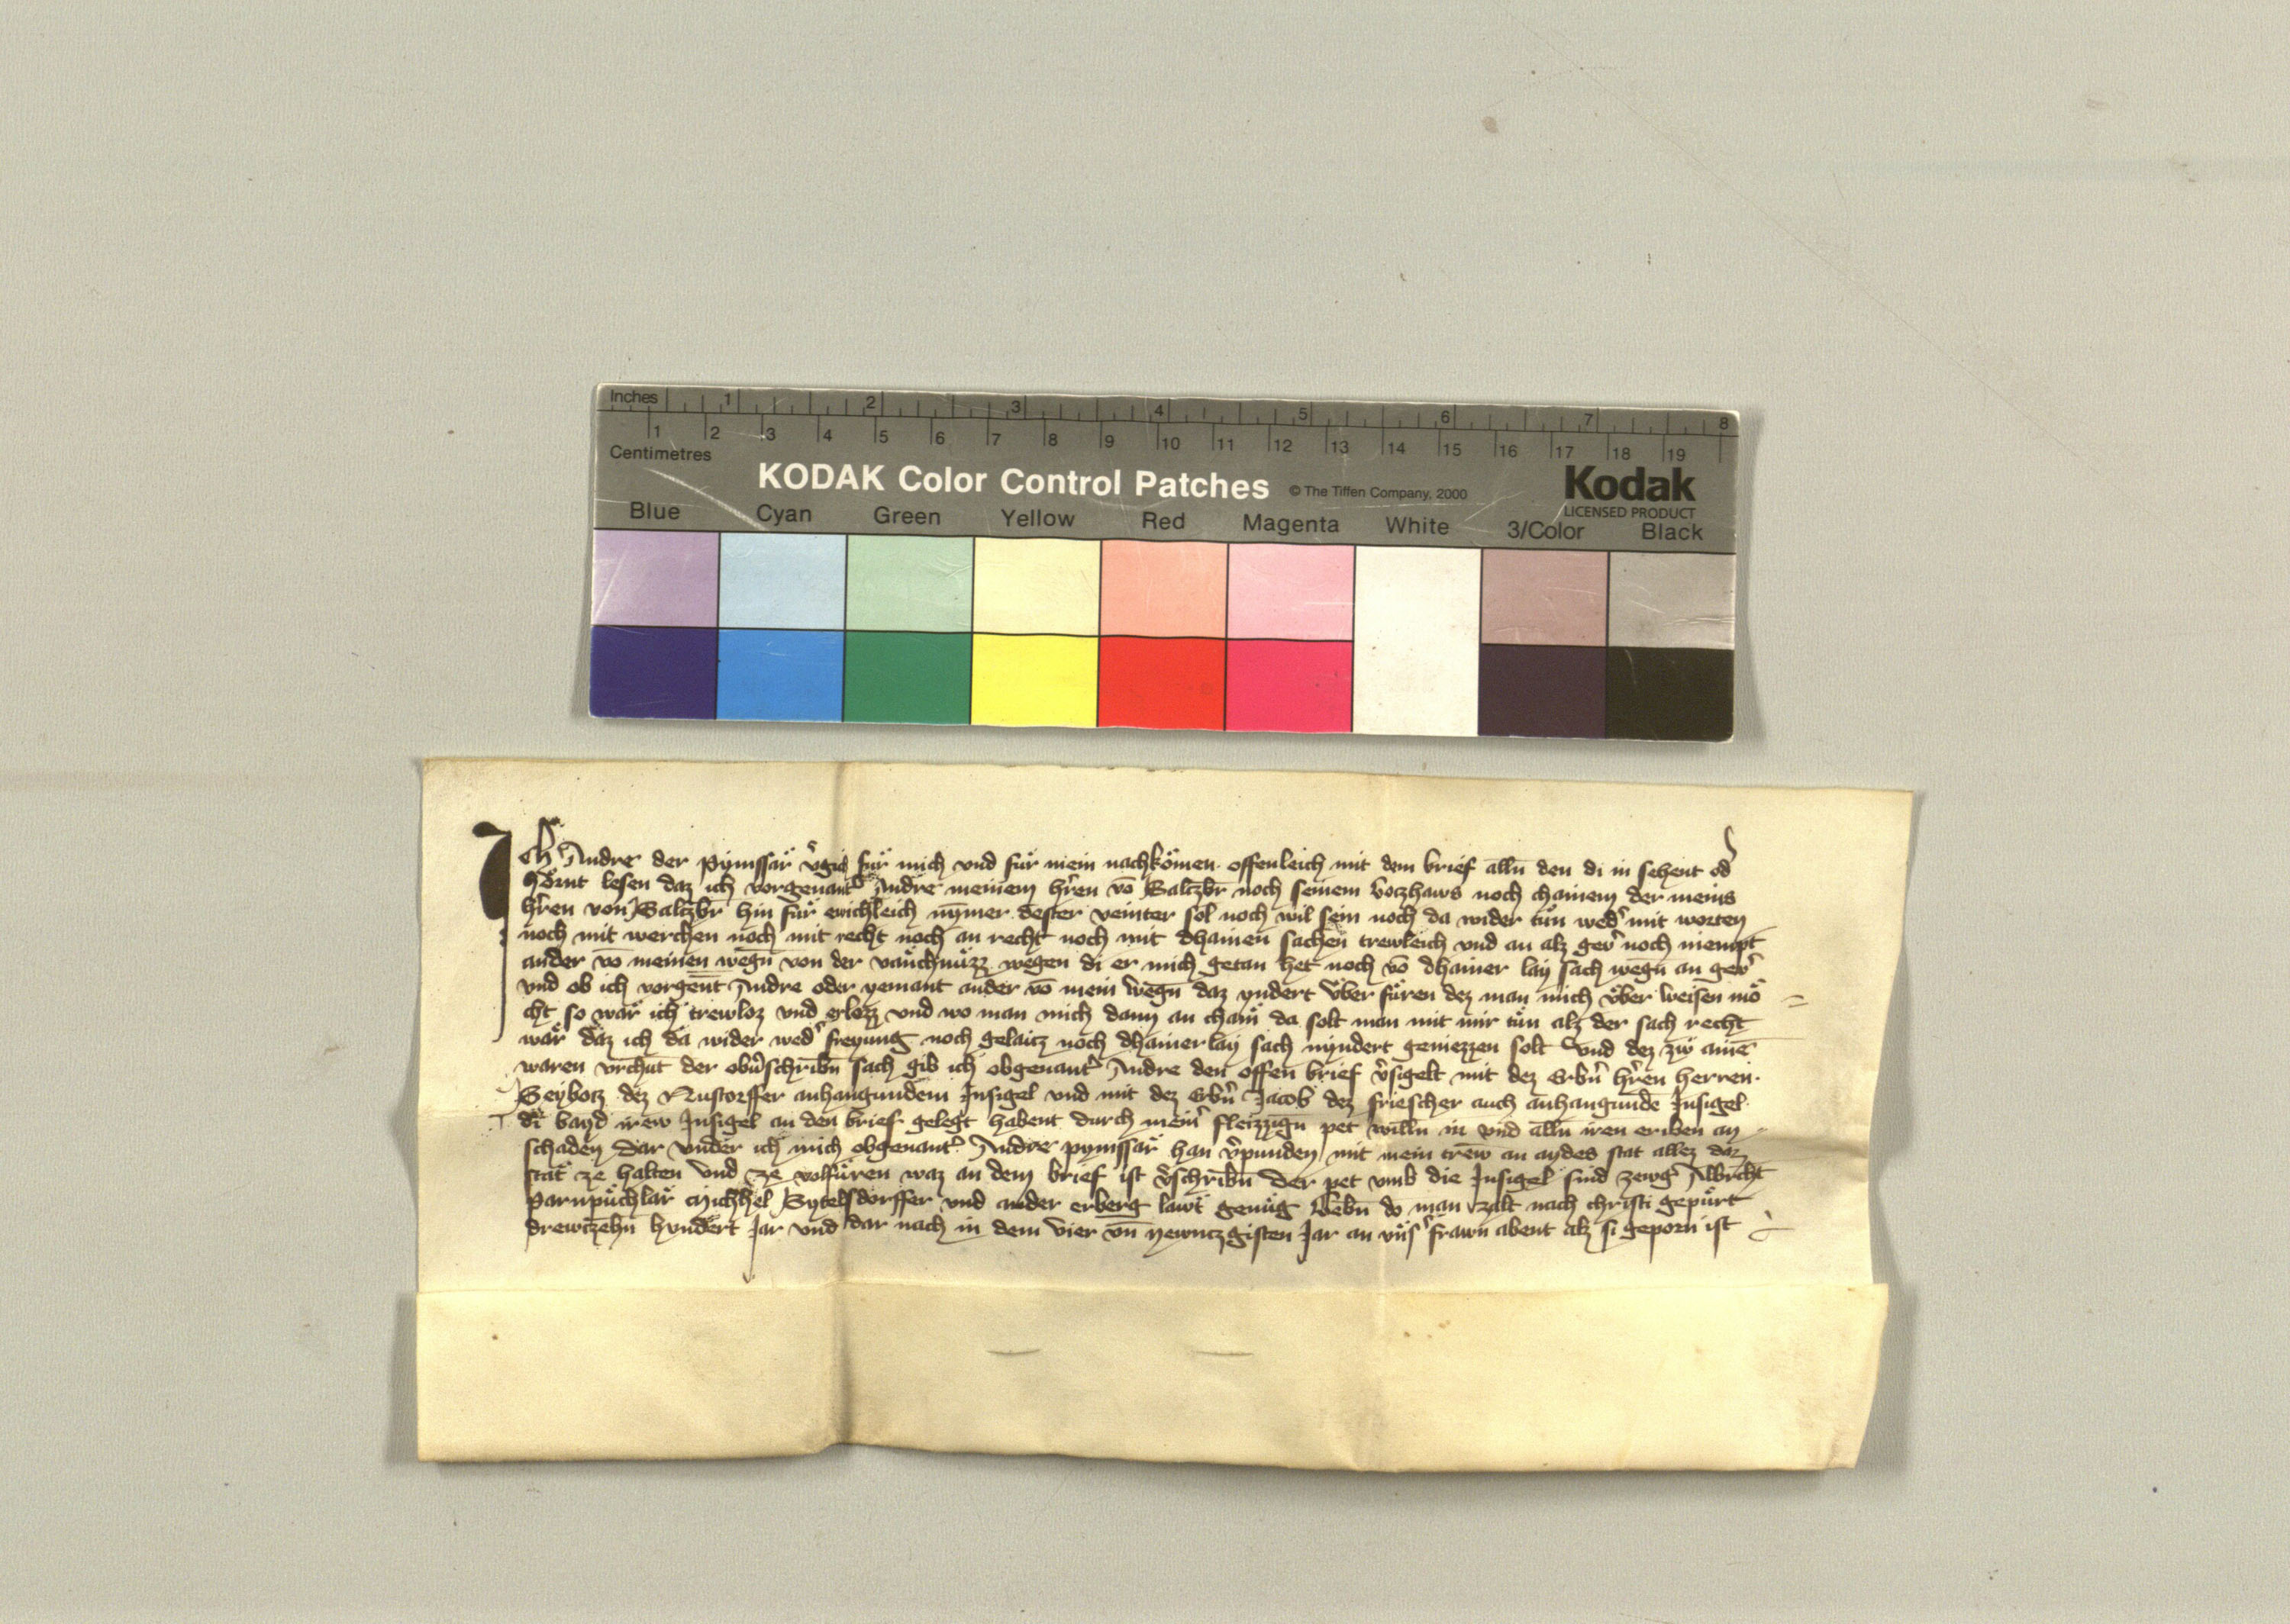 Inches 1 2 3 4 5 6 7 8
1 2 3 4 5 6 7 8 9 10 11 12 13 14 15 16 17 18 19
Centimetres
KODAK Color Control Patches © The Tiffen Company, 2000 Kodak
LICENSED PRODUCT
Blue Cyan Green Yellow Red Magenta White 3/Color Black
Ich Andre der pymssär v̉gich für mich vnd für mein nachkömen offenleich mit dem brief alln̄ den di in sehent od̉
hörnt lesen daz ich vorgenant̉ Andre meinem hr̉en vō Saltzbr̄ noch seinem Gotzhaws noch chainem der meins
hr̉en von Saltzbr̄ hin für ewichleich nym̄er dester veinter sol noch wil sein noch da wider tůn wed̉ mit worten
noch mit werchen noch mit recht noch an recht noch mit dhainen sachen trewleich vnd an alz gev̉ noch niempt
ander vō meinen wegn̄ von der vanchnüzz wegen di er mich getan het noch vō dhainer lay sach wegn̄ an gev̉
vnd ob ich vorgen̄t Andre oder yemant ander vō mein wegn̄ daz yndert über füren dez man mich über weisen mö
cht so wär ich trewloz vnd erlozz vnd wo man mich dann an chäm da solt man mit mir tůn alz der sach recht
wär daz ich da wider wed̉ freyung noch gelaitz noch dhainerlay sach nyndert geniezzen solt vnd dez zw ainē
waren vrchūt der obv̉schribn̄ sach gib ich obgenant̉ Andre den offen brief v̉sigelt mit dez Erbn̉ hr̉en herren
Seybotz dez Nustorffer anhangundem Insigel vnd mit dez Erbn̉ Jacob dez friescher auch anhangundē Insigel
di bayd irew Insigel an den brief gelegt habent durch mein̉ fleizzign̄ pet willn̄ in vnd alln̄ iren eriben an
schaden dar vnder ich mich obgenant̉ Andre pymssär han v̉punden mit mein trew an aydes stat allez daz
stät ze halten vnd ze volfüren waz an dem brief ist v̉schribn̄ Der pet vmb die Insigel sind zewg̉ Albrecht
parnpüchlär Michhel Sytelsdorffer vnd ander erberg läwt genüg Gebn̄ do man zalt nach christi gepürt
drewtzehn̄ hvndert Jar vnd dar nach in dem vier vn̄ newntzgisten Jar an vns̉ frawn abent alz si geporn ist